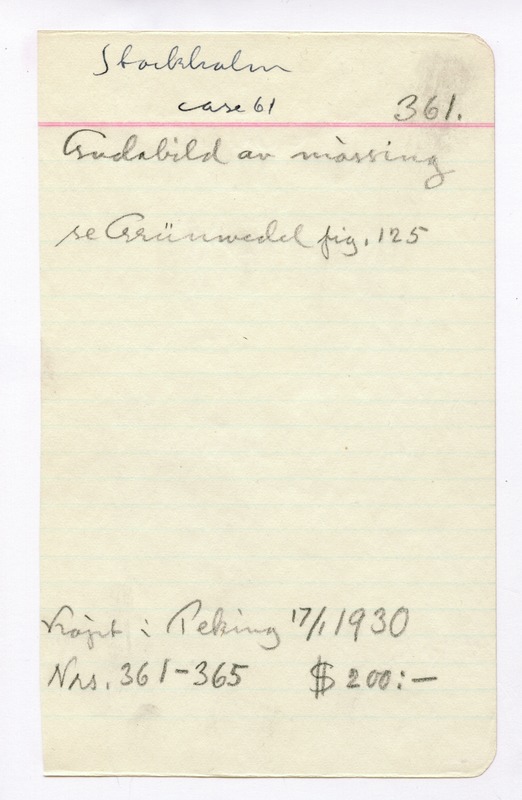 Stockholm
case 61
361.
Gudabild av mässing
se Grünwedel fig. 125
Köpt i Peking 17/1 1930
Nrs. 361-365 $ 200:-